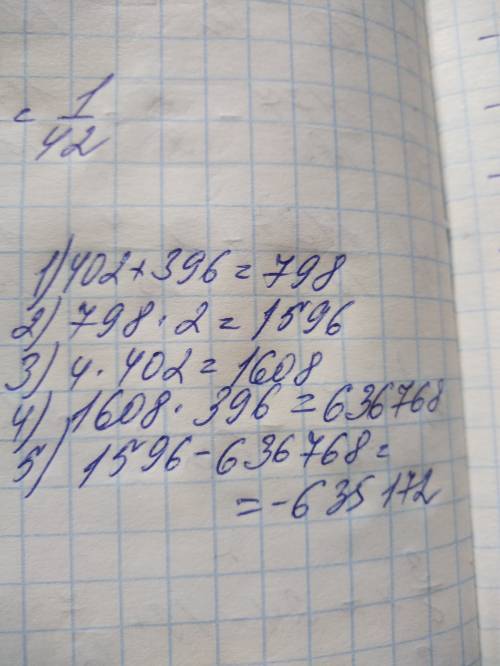 = 1/42
1) 402 + 396 = 798
2) 798 · 2 = 1596
3) 4 · 402 = 1608
4) 1608 · 396 = 636768
5) 1596 - 636768 =
= -635172